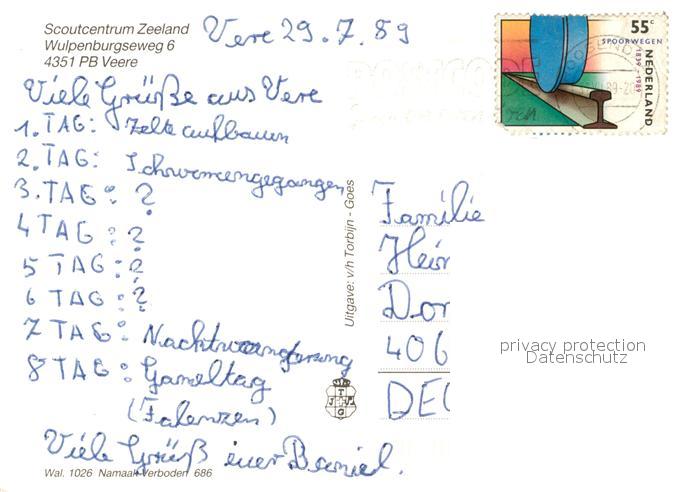 Scoutcentrum Zeeland
Wulpenburgseweg 6
4351 PB Veere
Vere 29.7.89
55c
SPOORWEGEN
1839-1989
NEDERLAND
Viele Grüße aus Vere
1. TAG: Zelte aufbauen
2. TAG: Schwimmengegangen
3. TAG: ?
4 TAG: ?
5 TAG: ?
6 TAG: ?
7 TAG: Nachtwanderung
8 TAG: Gameltag
(Falenzen)
Viele Grüß euer Daniel.
Uitgave: v/h Torbijn - Goes
Familie
Hein
Dor
406
DEU
privacy protection
Datenschutz
Wal. 1026 Namaak Verboden 686